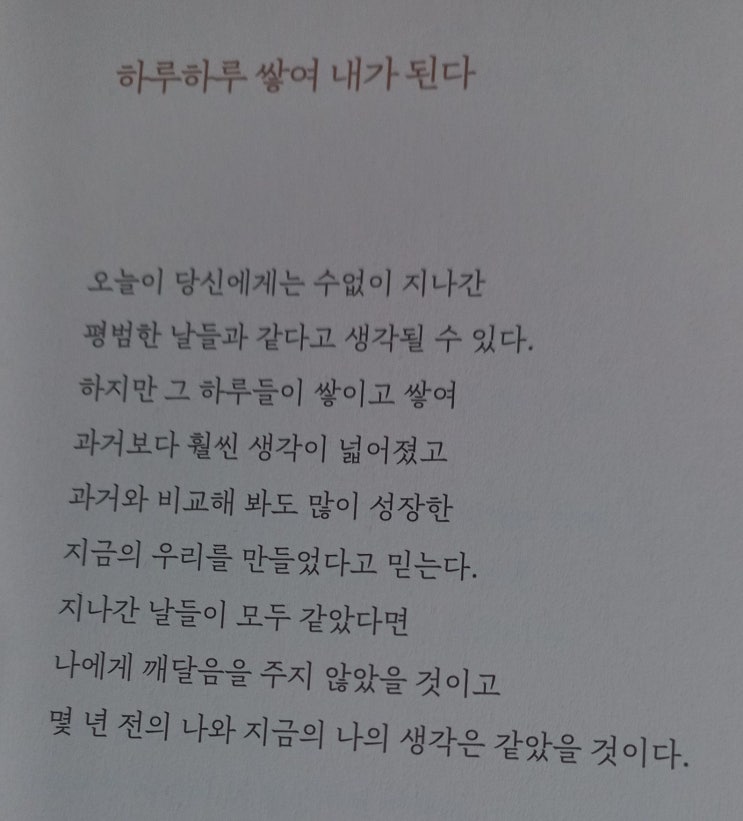 하루하루 쌓여 내가 된다
오늘이 당신에게는 수없이 지나간
평범한 날들과 같다고 생각될 수 있다.
하지만 그 하루들이 쌓이고 쌓여
과거보다 훨씬 생각이 넓어졌고
과거와 비교해 봐도 많이 성장한
지금의 우리를 만들었다고 믿는다.
지나간 날들이 모두 같았다면
나에게 깨달음을 주지 않았을 것이고
몇 년 전의 나와 지금의 나의 생각은 같았을 것이다.